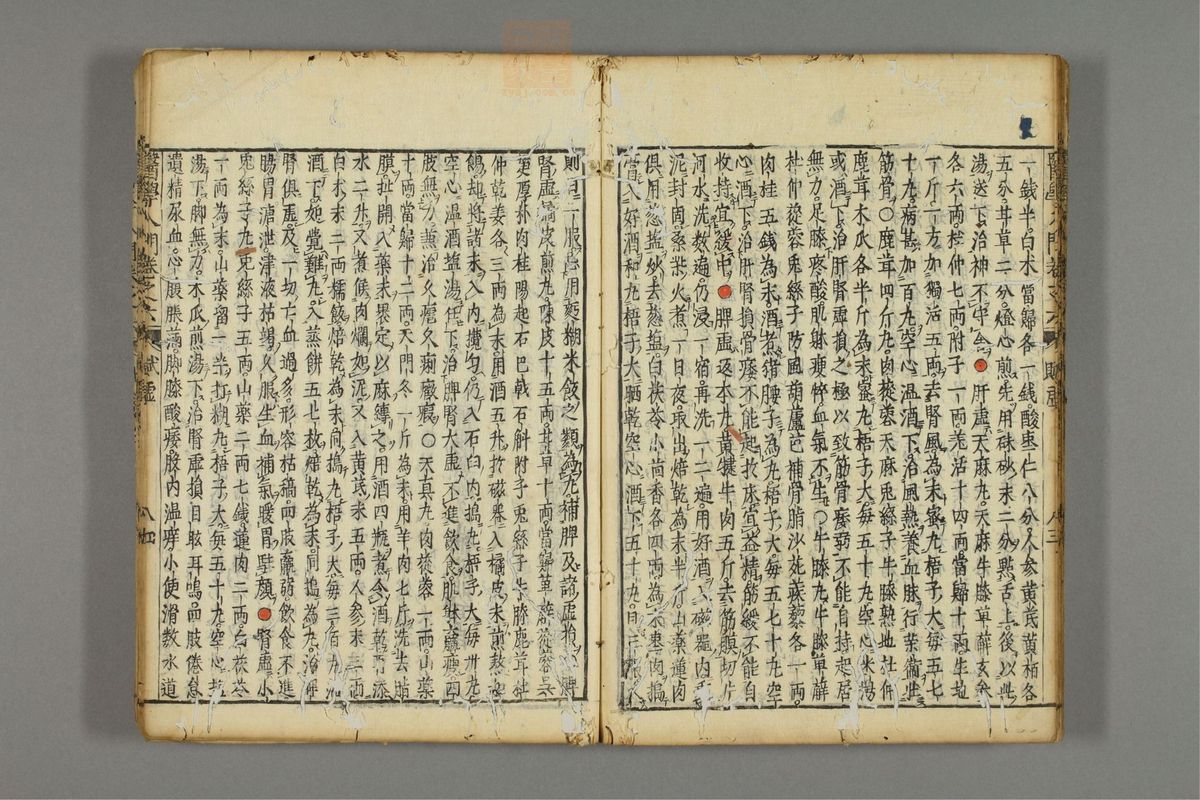 一錢半。白术當歸各一錢酸棗仁八分。人參黄芪黄栢各
五分。甘草二分燈心煎。先用硃砂末二分。點舌上。後以此
湯送下。治神不守舍●肝虛天麻丸。天麻牛膝萆薢玄參
各六両。杜仲七両。附子一両。羌活十四両當歸十両生地
一斤。一方加獨活五両。去腎風。為末。蜜丸梧子大。每五七
十丸。病甚加百丸。空心温酒下。治風熱。養血脉。行榮衛。壯
筋骨○鹿茸四斤丸。肉蓯蓉天麻兎絲子牛膝熟地杜仲
鹿茸木瓜各半斤。為末。蜜丸梧子大。每五十丸空心米湯
或酒下。治肝腎虛損之極。以致筋骨痿弱。不能自持。起居
無力。足膝疼酸。肌射瘦悴。血氣不生○牛膝丸。牛膝萆薢
杜仲蓯蓉兎絲子防風葫蘆巴補骨脂沙苑蒺藜各一両。
肉桂五錢。為末。酒煮猪腰子為丸梧子大。每五七十丸空
心酒下。治肝腎損骨痿。不能起於床。宜益精。筋緩。不能自
收持。宜緩中●脾虛返本丸。黄犍牛肉五斤。去筋膜切片。
河水洗數遍。仍浸一宿。再洗一二遍。用好酒入磁器内重
泥封固。桑柴火煮一日夜。取出焙乾為末半斤。山薬蓮肉
俱用葱塩炒去葱塩白茯苓小茴香各四両。為末。棗肉搗
膏入好酒和丸梧子大。晒乾。空心酒下五十丸。日三服。久
則日一服。忌用麪糊米飲之類為丸。補脾及諸虛損○脾
腎虛橘皮煎丸。陳皮十五両。甘草十両。當歸萆薢蓯蓉吳
萸厚朴肉桂陽起石巴戟石斛附子兎絲子牛膝鹿茸杜
仲乾姜各三両。為末。用酒五升。於磁器入橘皮末煎熬。如
餳。却將諸末入内攪勻。仍入石臼内搗丸梧子大。每卅丸
空心温酒塩湯任下。治脾腎大虛。不進飲食。肌躰羸瘦。四
肢無力。兼治久瘧久痢癥瘕○天真丸。肉蓯蓉一両。山薬
十両。當歸十二両。天門冬一斤。為末。用羊肉七斤。洗去脂
膜扯開。入薬末。裹定。以麻縛之。用酒四瓶煮令酒乾。再添
水二升。又煮。候肉爛如泥。又入黄芪末五両。人參末三両
白术末二両。糯飯焙乾。為末。同搗丸梧子大。每三百丸。温
酒下。如覺難丸。入蒸餅五七枚。焙乾為末。同搗為丸。治脾
腎俱虛。及一切亡血過多。形容枯槁。四肢羸弱。飲食不進
腸胃溏泄。津液枯竭。久服生血補氣暖胃駐顔●腎虛小
兎絲子丸。兎絲子五両。山薬二両七錢。蓮肉二両。白茯苓
一両。為末。山薬留一半打糊丸梧子大。每五十丸空心塩
湯下。脚無力木瓜煎湯下。治腎虛損。目眩耳鳴。四肢倦怠
遺精尿血。心腹脹満。脚膝酸痿。股内温痒。小便滑數。水道